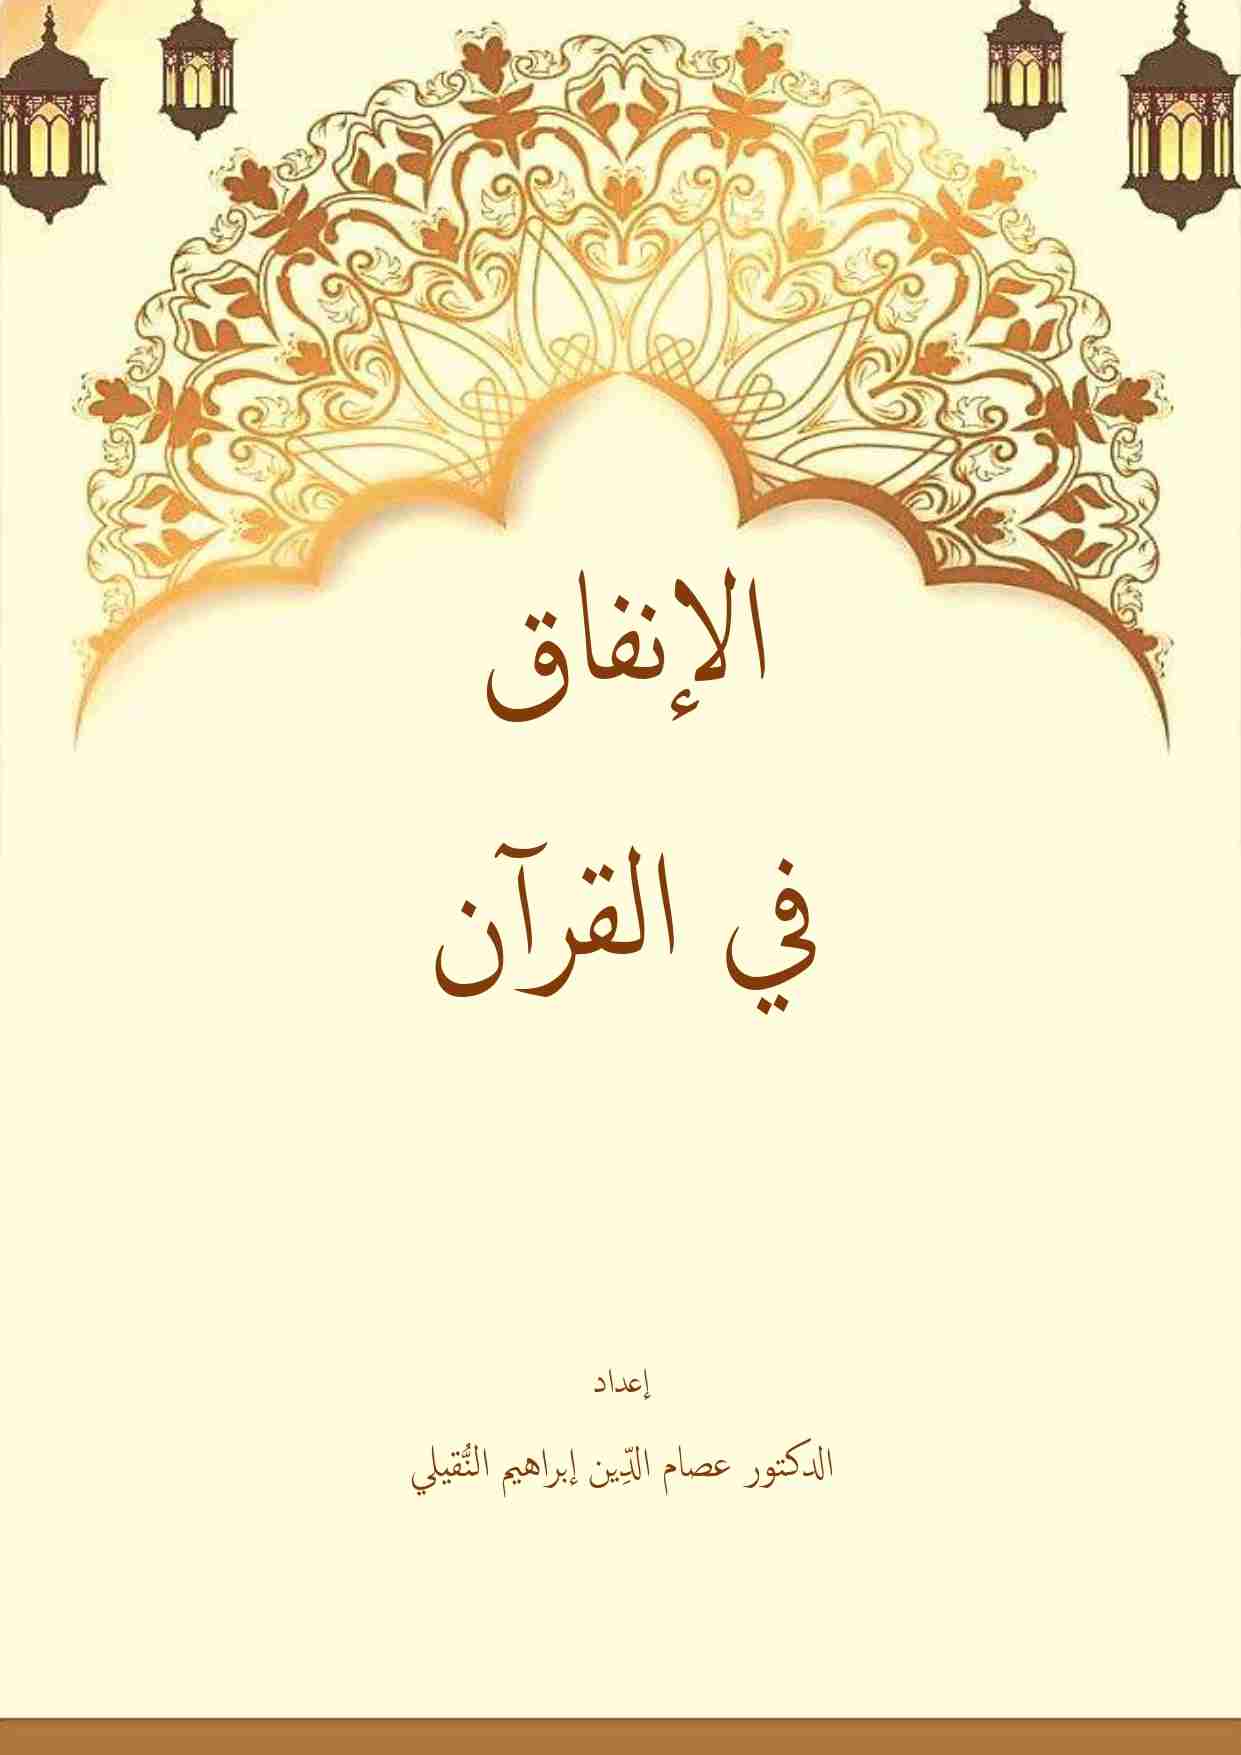 الإنفاق
في القرآن
إعداد
الدكتور عصام الدِّين إبراهيم النُّقيلي